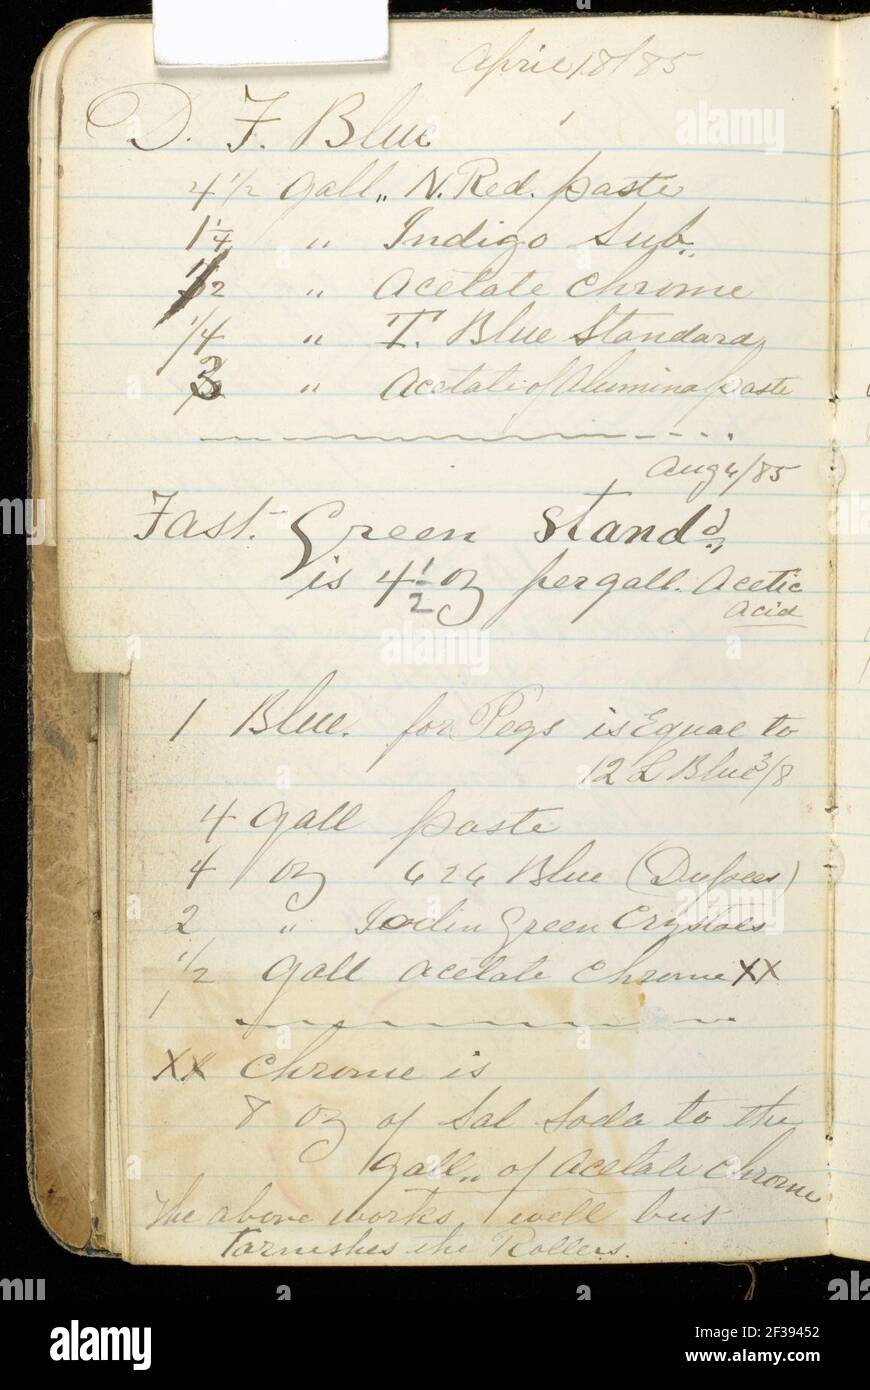 April 18/85
D. F. Blue
4 1/2 Gall,, N. Red. paste
1 1/4 " Indigo Sub,,
1/2 " Acetate Chrome
1/4 " T. Blue Standard
3 " Acetate of Alumina paste
Aug 4/85
Fast. Green Stand'd
is 4 1/2 oz per gall. Acetic
Acid
1 Blue. for Pegs is Equal to
12 L Blue 3/8
4 Gall paste
4 oz 626 Blue (Dupees)
2 " Iodin Green Crystals
1/2 Gall Acetate Chrome XX
XX Chrome is
8 oz of Sal Soda to the
Gall,, of Acetate Chrome
The above works well but
Tarnishes the Rollers.
alamy
alamy
alamy
alamy
Image ID: 2F39452
www.alamy.com